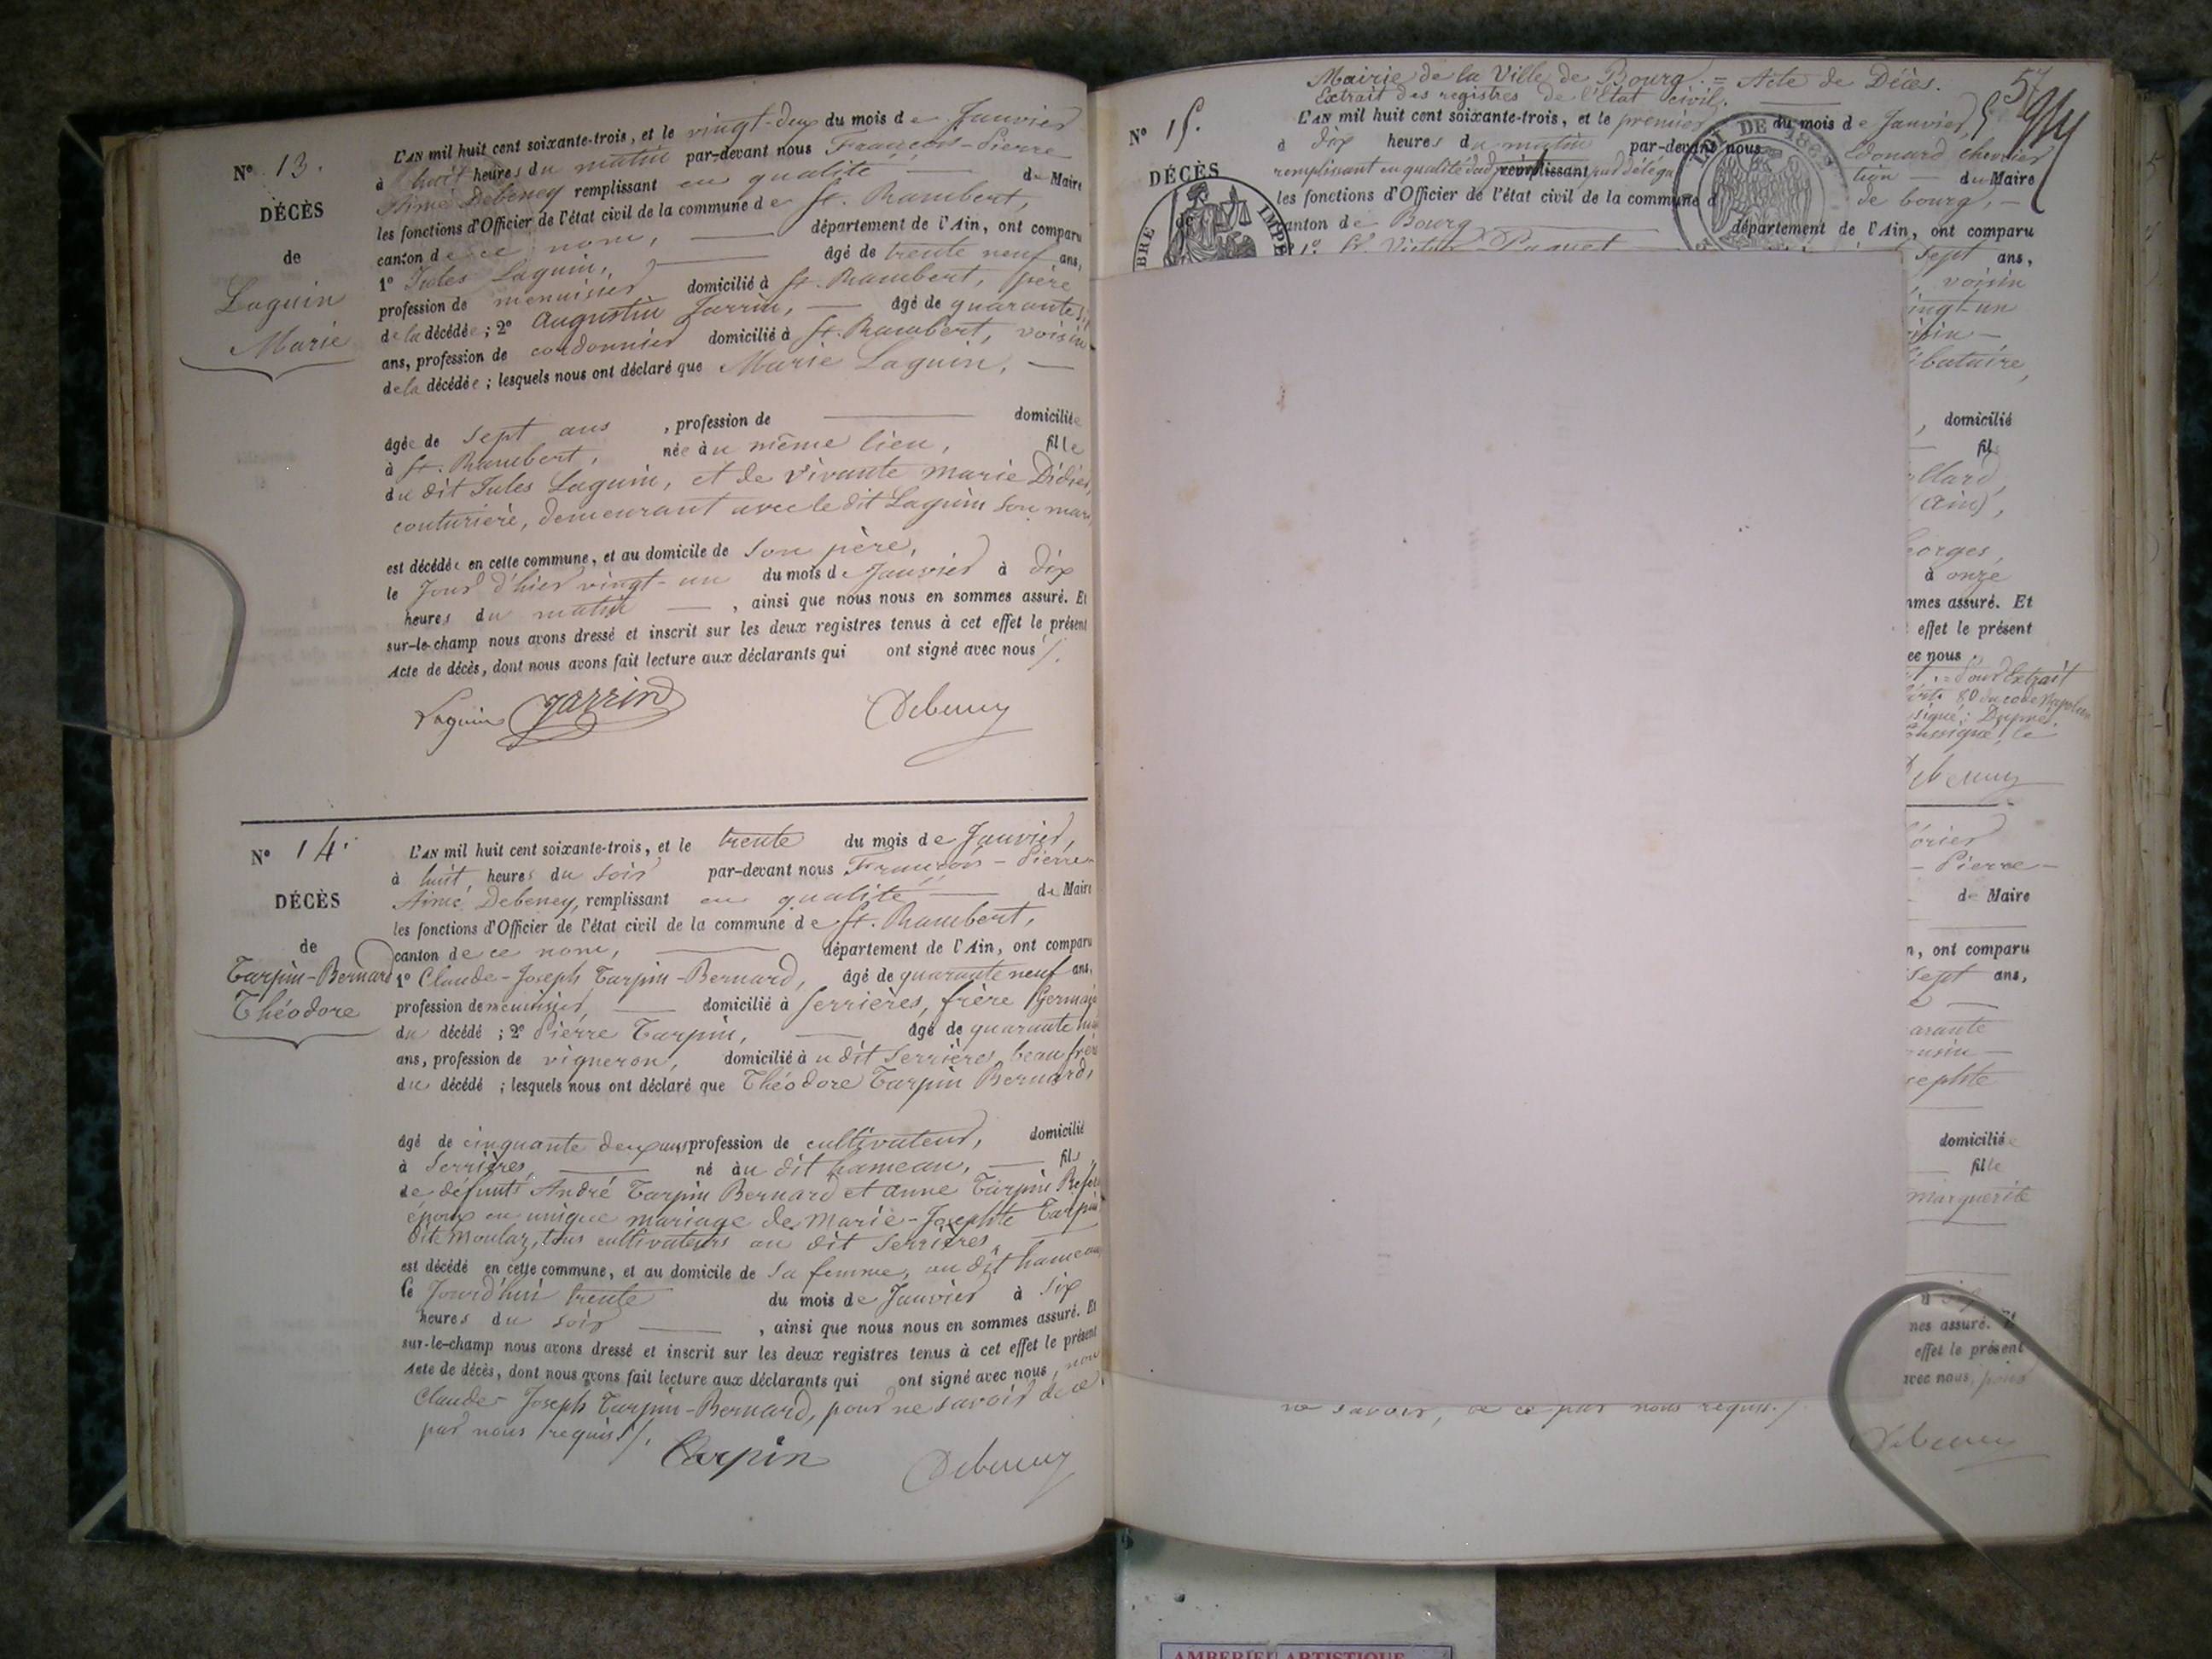 N° 13.
DÉCÈS
de
Laguin
Marie
L'AN mil huit cent soixante-trois, et le vingt-deux du mois de Janvier
à huit heures du matin par-devant nous François-Pierre
Aimé Debeney remplissant en qualité de Maire
les fonctions d'Officier de l'état civil de la commune de St. Rambert,
canton de ce nom, département de l'Ain, ont comparu
1° Jules Laguin, âgé de trente neuf ans,
profession de menuisier domicilié à St. Rambert, père
de la décédée ; 2° Augustin Jarrin, âgé de quarante
ans, profession de cordonnier domicilié à St. Rambert, voisin
de la décédée ; lesquels nous ont déclaré que Marie Laguin,
âgée de sept ans , profession de domiciliée
à St. Rambert, née au même lieu, fille
du dit Jules Laguin, et de vivante Marie Didier,
couturière, demeurant avec le dit Laguin son mari
est décédée en cette commune, et au domicile de son père,
le Jour d'hier vingt-un du mois de Janvier à dix
heures du matin , ainsi que nous nous en sommes assuré. Et
sur-le-champ nous avons dressé et inscrit sur les deux registres tenus à cet effet le présent
Acte de décès, dont nous avons fait lecture aux déclarants qui ont signé avec nous /.
Laguin Jarrin Debeney
N° 14.
DÉCÈS
de
Tarpin-Bernard
Théodore
L'AN mil huit cent soixante-trois, et le trente du mois de Janvier,
à huit heures du soir par-devant nous François-Pierre
Aimé Debeney, remplissant en qualité de Maire
les fonctions d'Officier de l'état civil de la commune de St. Rambert,
canton de ce nom, département de l'Ain, ont comparu
1° Claude-Joseph Tarpin-Bernard, âgé de quarante neuf ans,
profession de menuisier, domicilié à Serrières, frère Germain
du décédé ; 2° Pierre Tarpin, âgé de quarante
ans, profession de vigneron, domicilié à u dit Serrières, beau frère
du décédé ; lesquels nous ont déclaré que Théodore Tarpin Bernard,
âgé de cinquante deux ans profession de cultivateur, domicilié
à Serrières, né au dit hameau, fils
de défunts André Tarpin Bernard et Anne Tarpin
époux en unique mariage de Marie-Josephte Tarpin
dite Moulaz, tous cultivateurs au dit Serrières
est décédé en cette commune, et au domicile de sa femme, au dit hameau
le Jourd'hui trente du mois de Janvier à six
heures du soir , ainsi que nous nous en sommes assuré. Et
sur-le-champ nous avons dressé et inscrit sur les deux registres tenus à cet effet le présent
Acte de décès, dont nous avons fait lecture aux déclarants qui ont signé avec nous, non
Claude-Joseph Tarpin-Bernard, pour ne savoir de ce
par nous requis /.
Tarpin Debeney
57
Mairie de la Ville de Bourg. = Acte de Décès.
Extrait des registres de l'Etat civil.
N° 15.
DÉCÈS
de
L'AN mil huit cent soixante-trois, et le premier du mois de Janvier,
à dix heures du matin par-devant nous Edouard Chevrier
remplissant en qualité d'ad remplissant par déléga tion du Maire
les fonctions d'Officier de l'état civil de la commune d de bourg,
canton de Bourg département de l'Ain, ont comparu
sept ans,
voisin
vingt-un
domicilié
fil
(Ain),
à onze
mmes assuré. Et
effet le présent
ec nous
Pour Extrait
80 du code Napoléon
signé : Dupré.
le
Debeney
Pierre
de Maire
n, ont comparu
sept ans,
domiciliée
fille
Marguerite
nes assuré. Et
effet le présent
avec nous, pour
ne savoir, de ce par nous requis./.
Debeney
AMBERIEU ARTISTIQUE